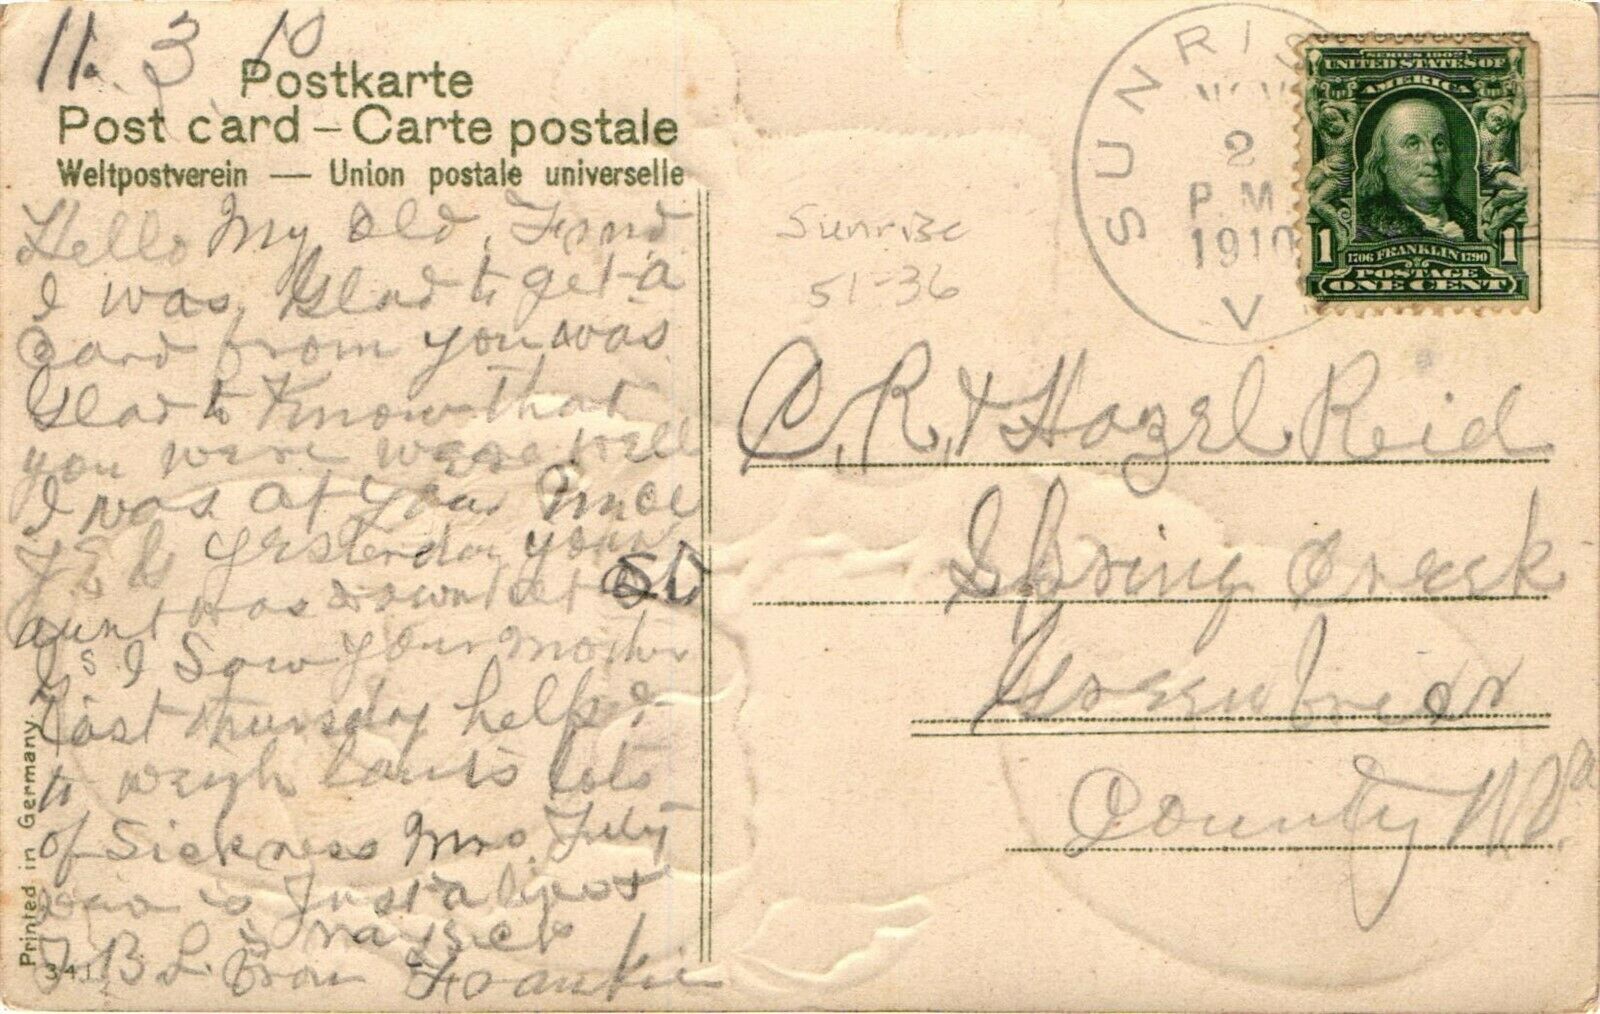 11. 3 10
Postkarte
Post card – Carte postale
Weltpostverein — Union postale universelle
Hello My Old Frind
I was Glad to get a
Card from you was
Glad to Know that
you were well
I was at your
yesterday your
aunt was down
I Saw your mother
last thursday help
to weigh lots
of Sickness Mrs
is Just a
Sick
From Frankie
Printed in Germany
341
SUNRISE
NOV
2
P.M.
1910
V
SERIES 1902
UNITED STATES OF
AMERICA
1 1706 FRANKLIN 1790 1
POSTAGE
ONE CENT
Sunrise
51-36
C. R. & Hazel Reid
Spring Creek
Greenbrier
County W. Va